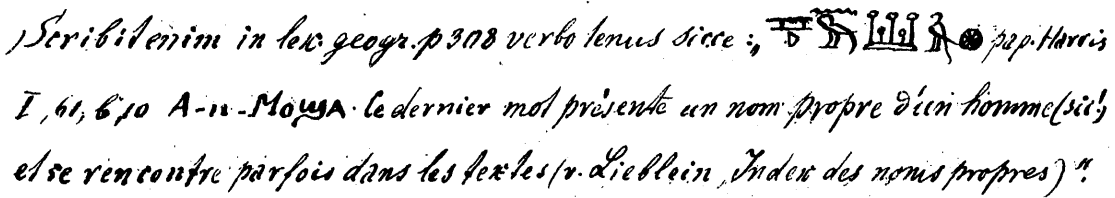 ) Scribit enim in lex. geogr. p 308 verbo tenus sicce : „ pap. Harris
I, 61, b, 10 A-n-Moшa. Ce dernier mot présente un nom propre d'un homme (sic!)
et se rencontre parfois dans les textes (v. Lieblein, Index des noms propres)".